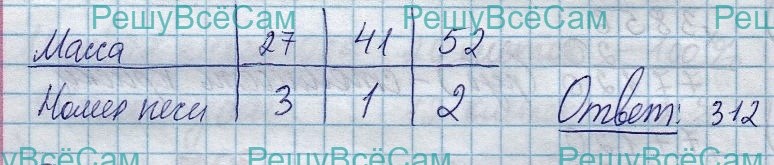 РешуВсёСам РешуВсёСам РешуВсёСам
Масса 27 41 52
Номер 3 1 2 Ответ: 312
РешуВсёСам РешуВсёСам РешуВсёСам